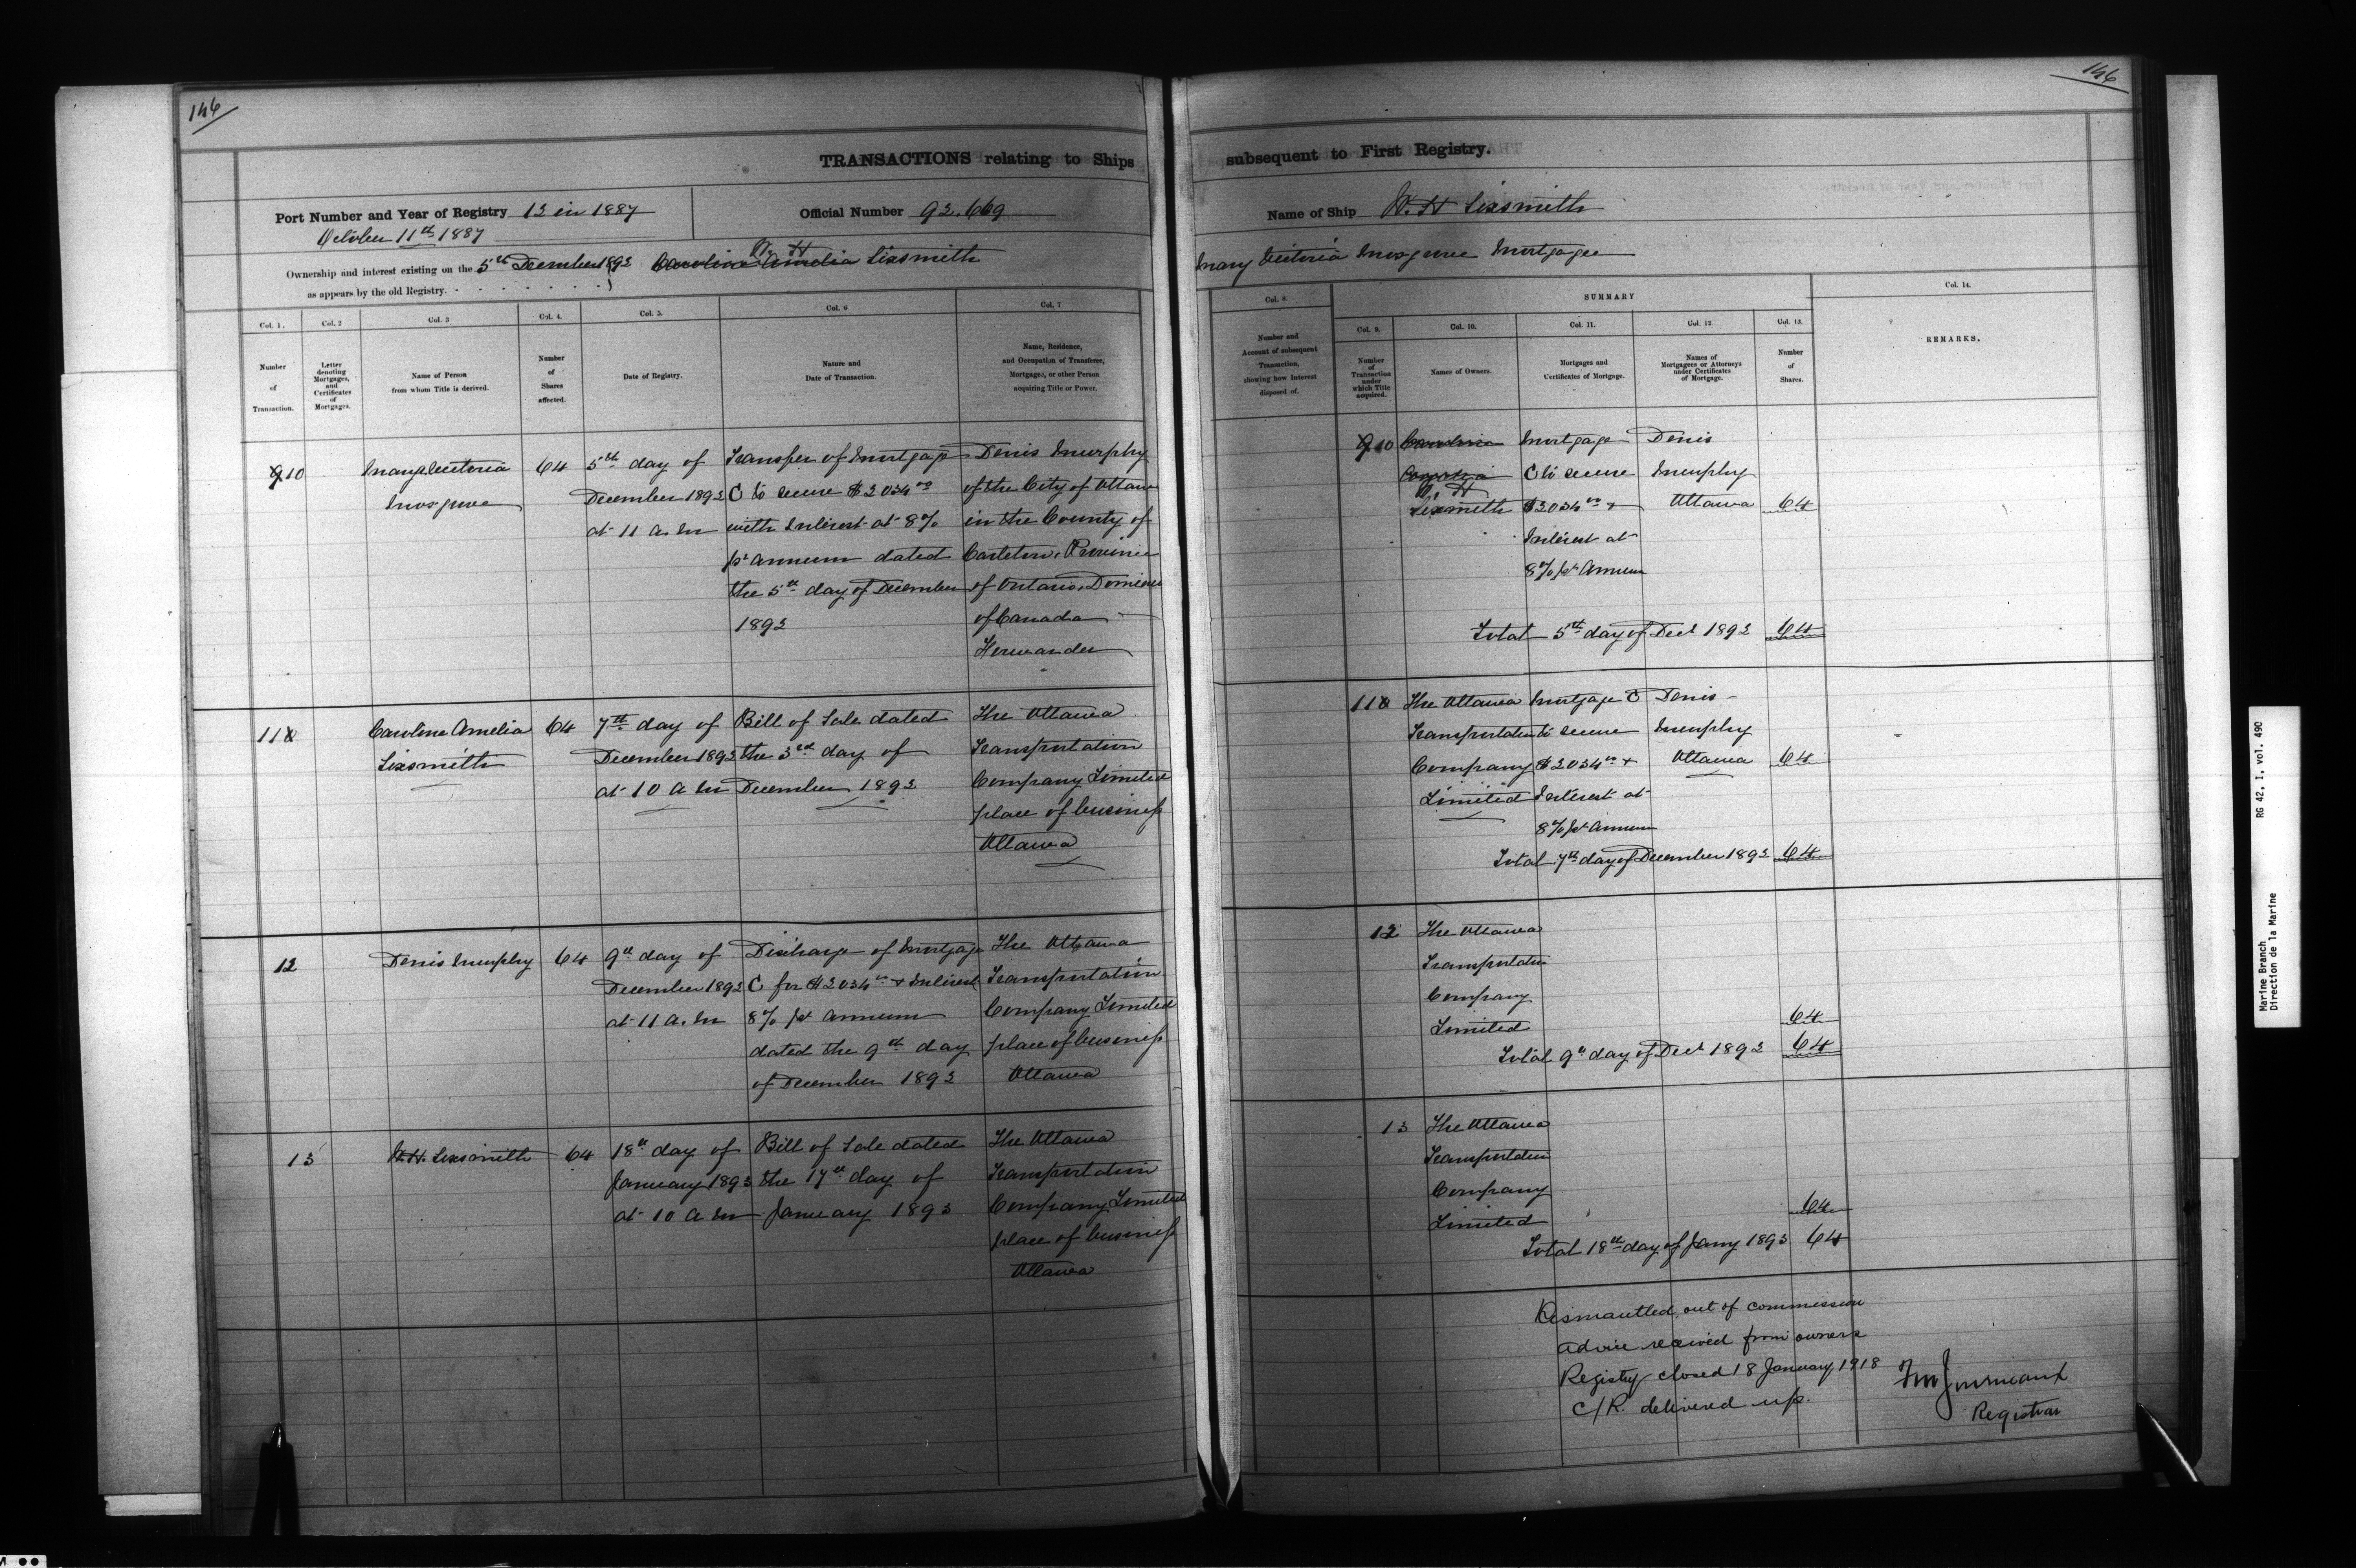 146
TRANSACTIONS relating to Ships
Port Number and Year of Registry 13 in 1887
October 11th 1887
Official Number 92.669
W. H
Ownership and interest existing on the 5th December 1892 Caroline Amelia Sixsmith
as appears by the old Registry.
Col. 1. Col. 2 Col. 3 Col. 4. Col. 5. Col. 6 Col. 7
Number of Transaction.
Letter denoting Mortgages, and Certificates of Mortgages.
Name of Person from whom Title is derived.
Number of Shares affected.
Date of Registry.
Nature and Date of Transaction.
Name, Residence, and Occupation of Transferee, Mortgagee, or other Person acquiring Title or Power.
9 10
Mary Victoria
Musgrove
64
5th day of
December 1892
at 11 a. m
Transfer of Mortgage
C to secure $2034.00
with Interest at 8%
pr annum dated
the 5th day of December
1892
Denis Murphy
of the City of Ottawa
in the County of
Carleton, Province
of Ontario, Dominion
of Canada
Forwarder
11
Caroline Amelia
Sixsmith
64
7th day of
December 1892
at 10 a m
Bill of Sale dated
the 3rd day of
December 1892
The Ottawa
Transportation
Company Limited
place of business
Ottawa
12
Denis Murphy
64
9th day of
December 1892
at 11 a. m
Discharge of Mortgage
C for $2034.00 + Interest
8% pr annum
dated the 9th day
of December 1892
The Ottawa
Transportation
Company Limited
place of business
Ottawa
13
W.H. Sixsmith
64
18th day of
January 1893
at 10 a m
Bill of Sale dated
the 17th day of
January 1893
The Ottawa
Transportation
Company Limited
place of business
Ottawa
146
subsequent to First Registry.
Name of Ship W. H Sixsmith
Mary Victoria Musgrove Mortgagee
Col. 8. SUMMARY Col. 14.
Col. 9. Col. 10. Col. 11. Col. 12 Col. 13.
Number and Account of subsequent Transaction, showing how Interest disposed of.
Number of Transaction under which Title acquired.
Names of Owners.
Mortgages and Certificates of Mortgage.
Names of Mortgagees or Attorneys under Certificates of Mortgage.
Number of Shares.
REMARKS.
9 10
Caroline
W. H
Sixsmith
Mortgage
C to secure
$2034.00 +
Interest at
8% pr Annum
Denis
Murphy
Ottawa
64
Total 5th day of Decr 1892 64
11
The Ottawa
Transportation
Company
Limited
Mortgage C
to secure
$2034.00 +
Interest at
8% pr Annum
Denis
Murphy
Ottawa
64
Total 7th day of December 1892 64
12
The Ottawa
Transportation
Company
Limited
64
Total 9th day of Decr 1892 64
13
The Ottawa
Transportation
Company
Limited
64
Total 18th day of Jany 1893 64
Dismantled, out of commission
advice received from owners
Registry closed 18 January, 1918
C/R. delivered up.
Registrar
Marine Branch
Direction de la Marine
RG 42, I, vol. 490